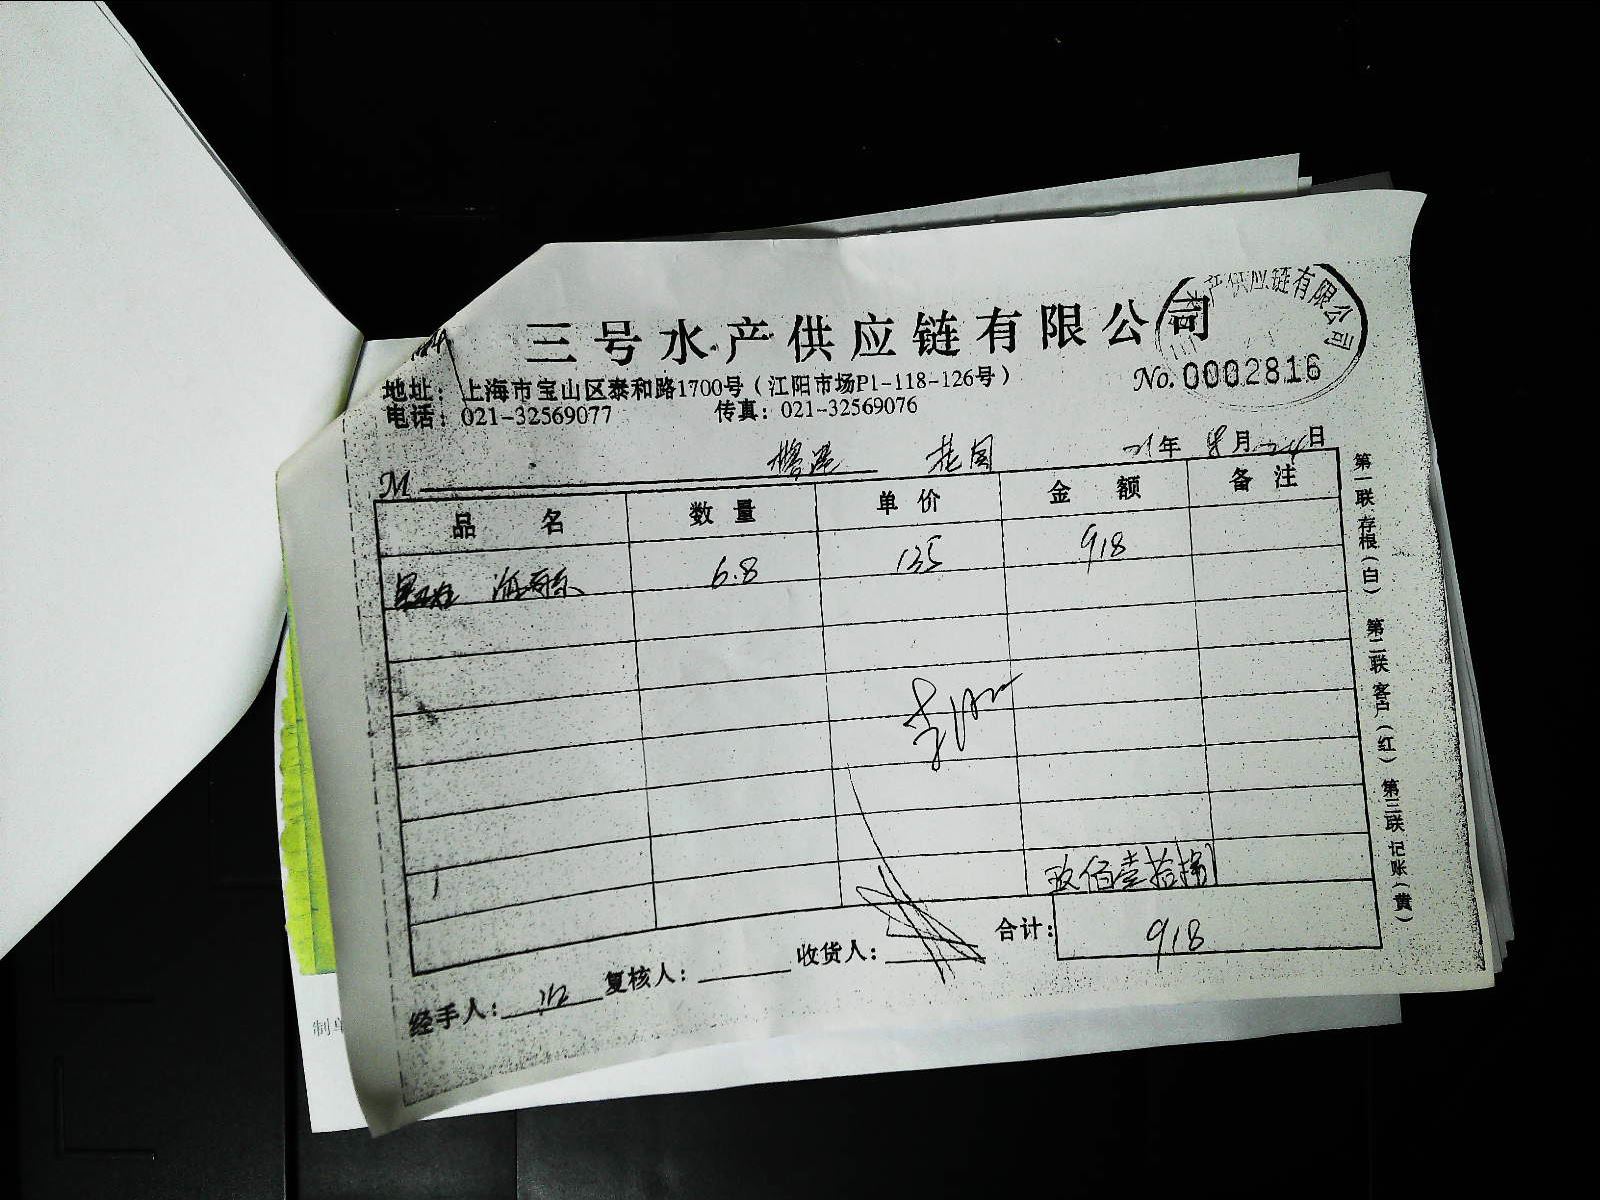 三号水产供应链有限公司
产供应链有限公司
No. 0002816
地址：上海市宝山区泰和路1700号（江阳市场P1-118-126号）
电话：021-32569077 传真：021-32569076
M 花园 21年 8月 24日
品名 数量 单价 金额 备注
6.8 135 918
玖佰壹拾捌
合计: 918
经手人: 复核人: 收货人:
第一联 存根（白） 第二联 客户（红） 第三联 记账（黄）
制单